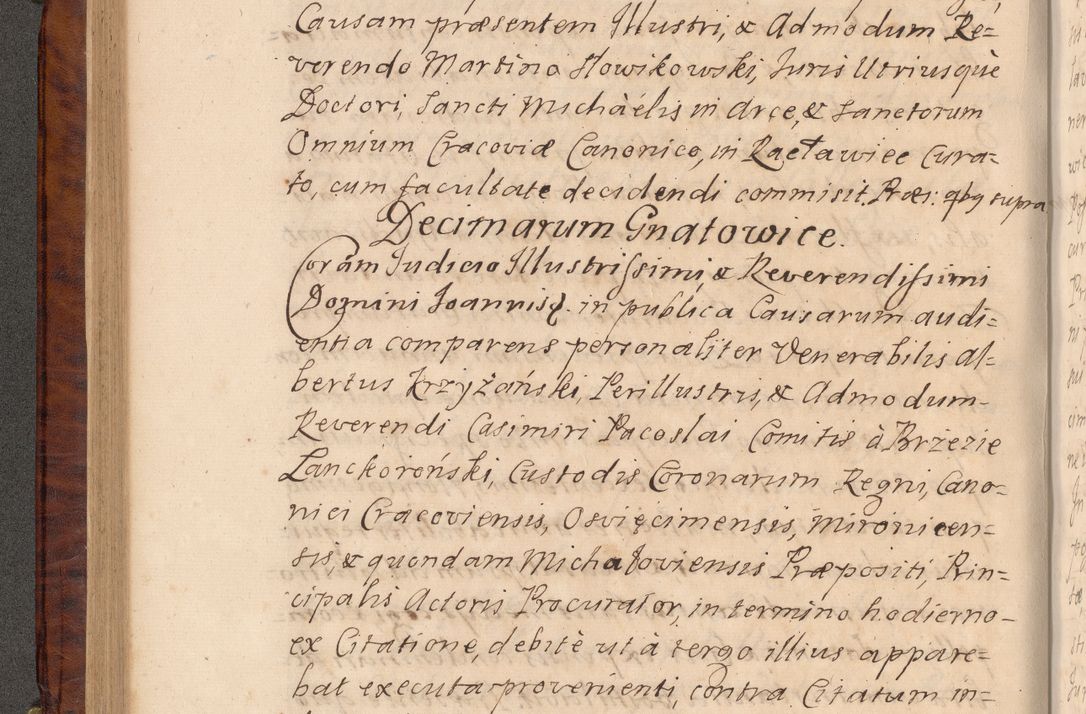 Causam præsentem Illustri, & Admodum Re=
verendo Martino Nowikowski, Iuris Utriusquè
Doctori, Sancti Michaëlis in Arce, & Sanctorum
Omnium Cracoviæ Canonico, in Racławice Cura=
to, cum facultate decidendi commisit. Præs: qbq supra
Decimarum Gnatowice.
Coram Iudicio Illustrissimi, & Reverendissimi
Domini Ioannis &. in publica Causarum audi=
entia comparens personaliter Venerabilis Al=
bertus Krzyżański, Perillustris, & Admodum
Reverendi Casimiri Pacoslai Comitis à Brzezie
Lanckoroński, Custodis Coronarum Regni, Cano=
nici Cracoviensis, Osvięcimensis, Mironicen=
sis, & quondam Michałoviensis Præpositi, Prin=
cipalis Actoris Procurator, in termino hodierno
ex Citatione, debitè ut à tergo illius appare=
bat executa provenienti, contra Citatum in=